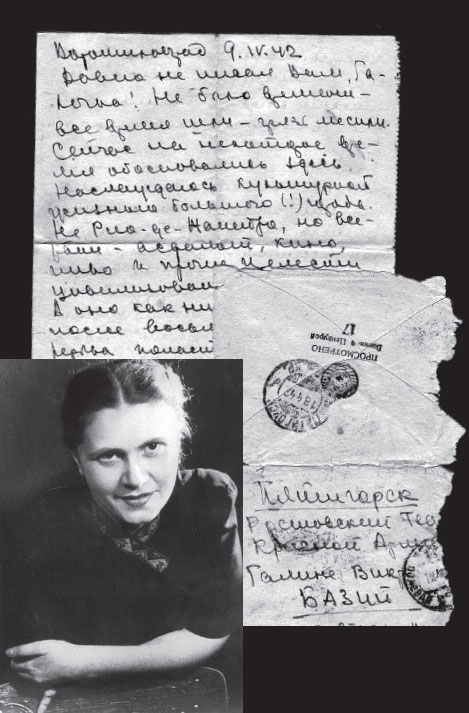 Ворошиловград 9.IV.42
Давно не писал Вам, Га-
лочка! Не было времени –
все время шли – грязь месили.
Сейчас на некоторое вре-
мя обосновались здесь.
Наслаждаюсь культурной
жизнью большого (!) города.
Не Рио-де-Жанейро, но все-
таки – асфальт, кино,
пиво и прочие прелести
цивилизован
А оно как ни
после восьм
попаст
ПРОСМОТРЕНО
Военной Цензурой
17
Пятигорск
Ростовский Теа
Красной Арми
Галине Викт
БАЗИЙ